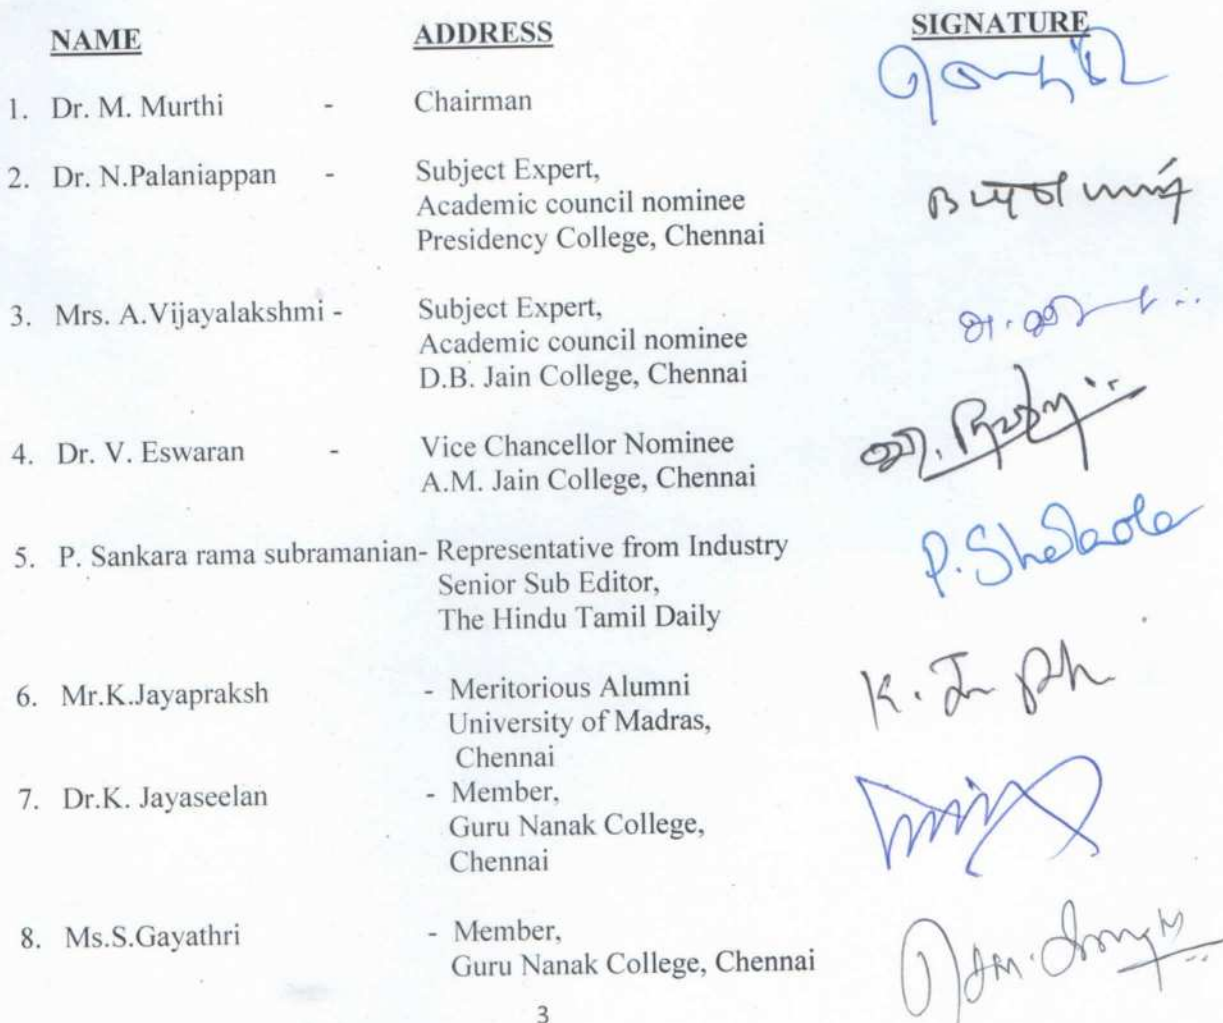 NAME ADDRESS SIGNATURE
1. Dr. M. Murthi - Chairman
2. Dr. N.Palaniappan - Subject Expert,
Academic council nominee
Presidency College, Chennai
3. Mrs. A.Vijayalakshmi - Subject Expert,
Academic council nominee
D.B. Jain College, Chennai
4. Dr. V. Eswaran - Vice Chancellor Nominee
A.M. Jain College, Chennai
5. P. Sankara rama subramanian- Representative from Industry
Senior Sub Editor,
The Hindu Tamil Daily
6. Mr.K.Jayapraksh - Meritorious Alumni
University of Madras,
Chennai
7. Dr.K. Jayaseelan - Member,
Guru Nanak College,
Chennai
8. Ms.S.Gayathri - Member,
Guru Nanak College, Chennai
3